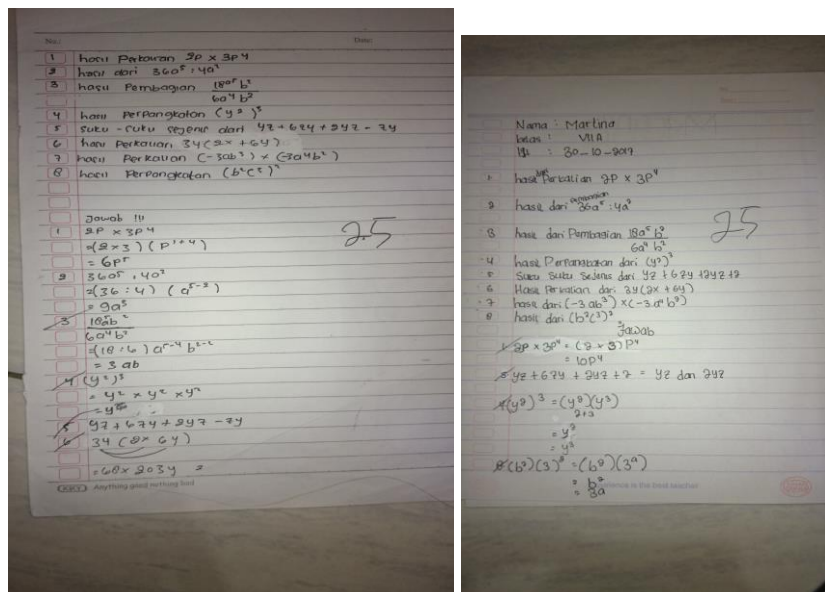 No.:
Date:
1 hasil Perkalian 2p × 3p4
2 hasil dari 36a⁵ : 4a²
3 hasil Pembagian 18a⁵ b²
6a⁴ b²
4 hasil Perpangkatan (y²)³
5 suku-suku sejenis dari yz + 6zy + 2yz - zy
6 hasil Perkalian 34(2x + 6y)
7 hasil Perkalian (-3ab³) × (-3a⁴b²)
8 hasil Perpangkatan (b²c³)²
Jawab !!!
1 2P × 3P4
=(2×3) (P¹⁺⁴)
= 6p⁵
2 36a⁵ : 4a²
=(36 : 4) (a⁵⁻²)
= 9a³
3 18a⁵b²
6a⁴b²
=(18:6) a⁵⁻⁴ b²⁻²
= 3 ab
4 (y²)³
= y² × y² × y²
5 yz + 6zy + 2yz - zy
6 34 (2x 6y)
=68x 203y =
25
KIKY Anything good nothing bad
Nama : Martina
kelas : VII A
30-10-2017
1 hasil Perkalian 2P × 3P⁴
2 hasil dari 36a⁵ : 4a²
3 hasil dari Pembagian 18a⁵ b²
6a⁴ b²
4 hasil Perpangkatan dari (y²)³
5 Suku Suku Sejenis dari yz + 6zy + 2yz + z
6 Hasil Perkalian dari 34(2x + 6y)
7 hasil dari (-3ab³) × (-3a⁴b²)
8 hasil dari (b²c³)²
Jawab
25
1 2P × 3P⁴ = (2 × 3) P⁴
= 10P⁴
5 yz + 6zy + 2yz + z = yz dan 2yz
4 (y²)³ = (y²)(y³)
2+3
= y²
= y³
8 (b²)(3)² = (b²)(3²)
= b²
= 3a
Experience is the best teacher